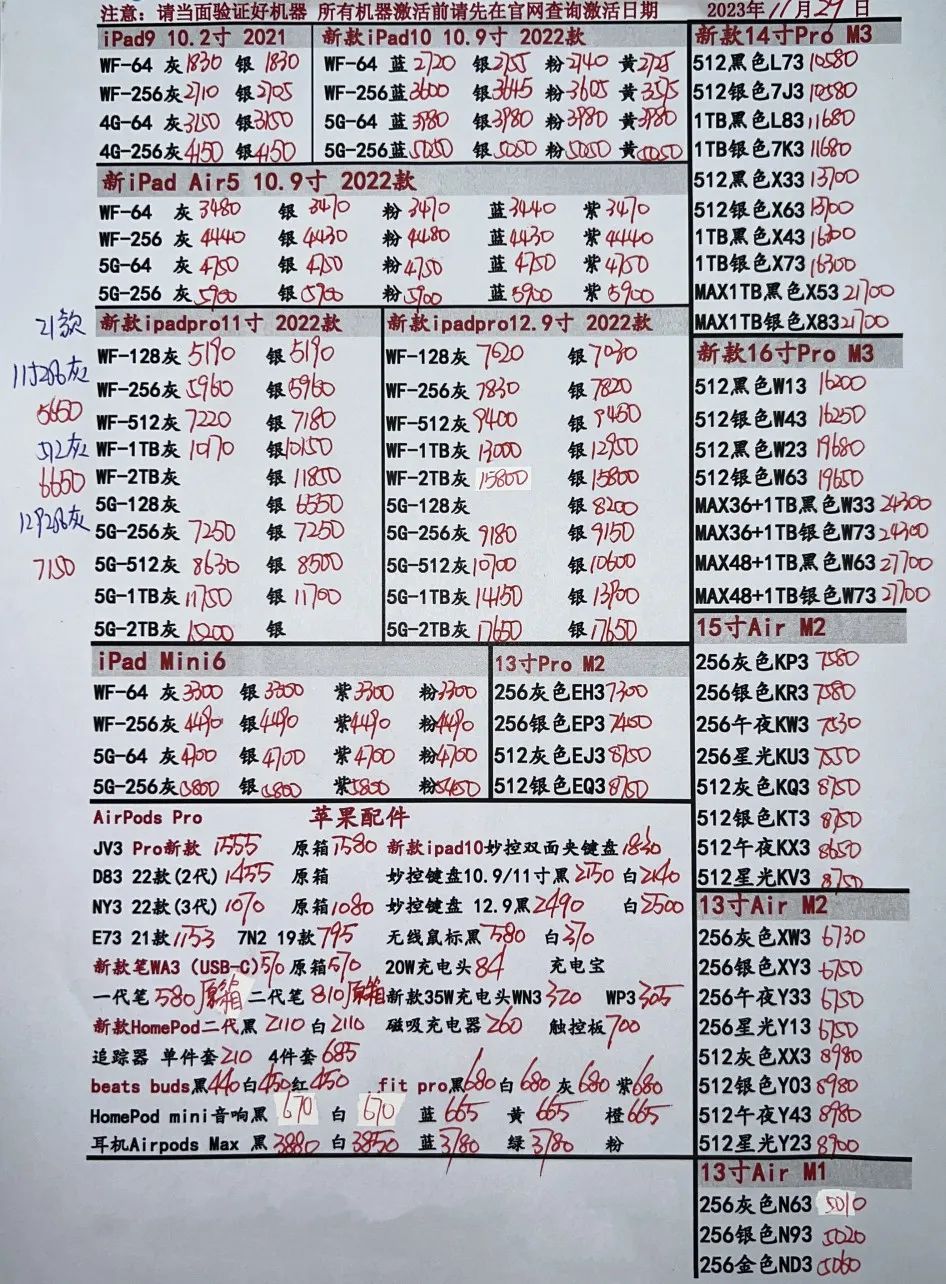 注意：请当面验证好机器 所有机器激活前请先在官网查询激活日期 2023年11月29日
iPad9 10.2寸 2021
WF-64 灰1830 银1830
WF-256灰2110 银2105
4G-64灰3150 银3150
4G-256灰4150 银4150
新款iPad10 10.9寸 2022款
WF-64 蓝2720 银2755 粉2740 黄2725
WF-256蓝3600 银3645 粉3605 黄3595
5G-64 蓝3980 银3980 粉3980 黄3980
5G-256蓝5050 银5050 粉5050 黄5050
新iPad Air5 10.9寸 2022款
WF-64 灰3480 银3470 粉3470 蓝3440 紫3470
WF-256 灰4440 银4430 粉4480 蓝4430 紫4440
5G-64 灰4750 银4750 粉4750 蓝4750 紫4750
5G-256 灰5900 银5900 粉5900 蓝5900 紫5900
21款
11寸256灰
5650
512灰
6650
129256灰
7150
新款ipadpro11寸 2022款
WF-128灰5190 银5190
WF-256灰5960 银5960
WF-512灰7220 银7180
WF-1TB灰10170 银10150
WF-2TB灰 银11850
5G-128灰 银6550
5G-256灰7250 银7250
5G-512灰8630 银8500
5G-1TB灰11750 银11700
5G-2TB灰15200 银
新款ipadpro12.9寸 2022款
WF-128灰7020 银7030
WF-256灰7830 银7820
WF-512灰9400 银9450
WF-1TB灰13000 银12950
WF-2TB灰15800 银15800
5G-128灰 银8200
5G-256灰9180 银9150
5G-512灰10700 银10600
5G-1TB灰14150 银13900
5G-2TB灰17650 银17650
iPad Mini6
WF-64 灰3300 银3300 紫3300 粉3300
WF-256灰4490 银4490 紫4490 粉4490
5G-64 灰4700 银4700 紫4700 粉4700
5G-256灰5800 银5800 紫5800 粉5450
13寸Pro M2
256灰色EH37300
256银色EP37450
512灰色EJ38750
512银色EQ38750
AirPods Pro 苹果配件
JV3 Pro新款 1555 原箱1580 新款ipad10妙控双面夹键盘1830
D83 22款(2代)1455 原箱 妙控键盘10.9/11寸黑2150 白2140
NY3 22款(3代)1070 原箱1080 妙控键盘 12.9黑2490 白2500
E73 21款1153 7N2 19款795 无线鼠标黑580 白370
新款笔WA3 (USB-C)510 原箱570 20W充电头84 充电宝
一代笔580原箱 二代笔810原箱 新款35W充电头WN3 320 WP3 305
新款HomePod二代黑2110 白2110 磁吸充电器260 触控板700
追踪器 单件套210 4件套685
beats buds黑440白450红450 fit pro黑680白680灰680紫680
HomePod mini音响黑670 白670 蓝665 黄665 橙665
耳机Airpods Max 黑3880 白3850 蓝3780 绿3780 粉
新款14寸Pro M3
512黑色L7310580
512银色7J310580
1TB黑色L8311680
1TB银色7K311680
512黑色X3313700
512银色X6313700
1TB黑色X4316300
1TB银色X7316300
MAX1TB黑色X5321700
MAX1TB银色X8321700
新款16寸Pro M3
512黑色W13 16200
512银色W43 16250
512黑色W23 19680
512银色W63 19650
MAX36+1TB黑色W33 24300
MAX36+1TB银色W73 24300
MAX48+1TB黑色W63 27700
MAX48+1TB银色W73 27700
15寸Air M2
256灰色KP37580
256银色KR37580
256午夜KW37530
256星光KU37550
512灰色KQ38750
512银色KT38750
512午夜KX38650
512星光KV38750
13寸Air M2
256灰色XW3 6730
256银色XY3 6750
256午夜Y33 6750
256星光Y13 6750
512灰色XX3 8980
512银色Y03 8980
512午夜Y43 8980
512星光Y23 8900
13寸Air M1
256灰色N63 5010
256银色N93 5020
256金色ND3 5060